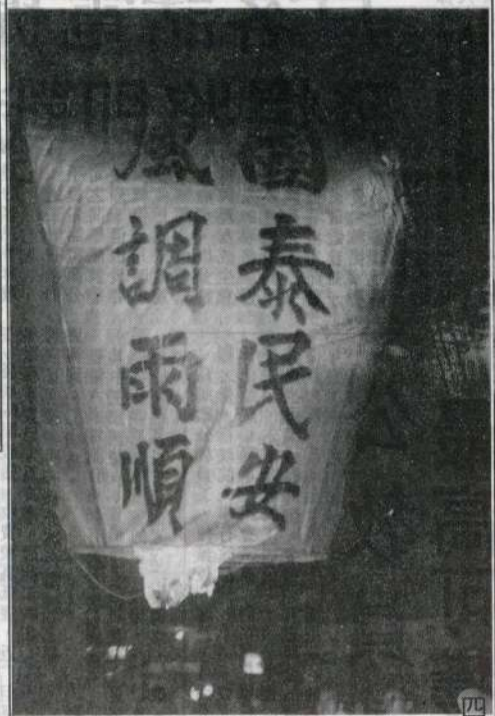 國泰民安
風調雨順
四